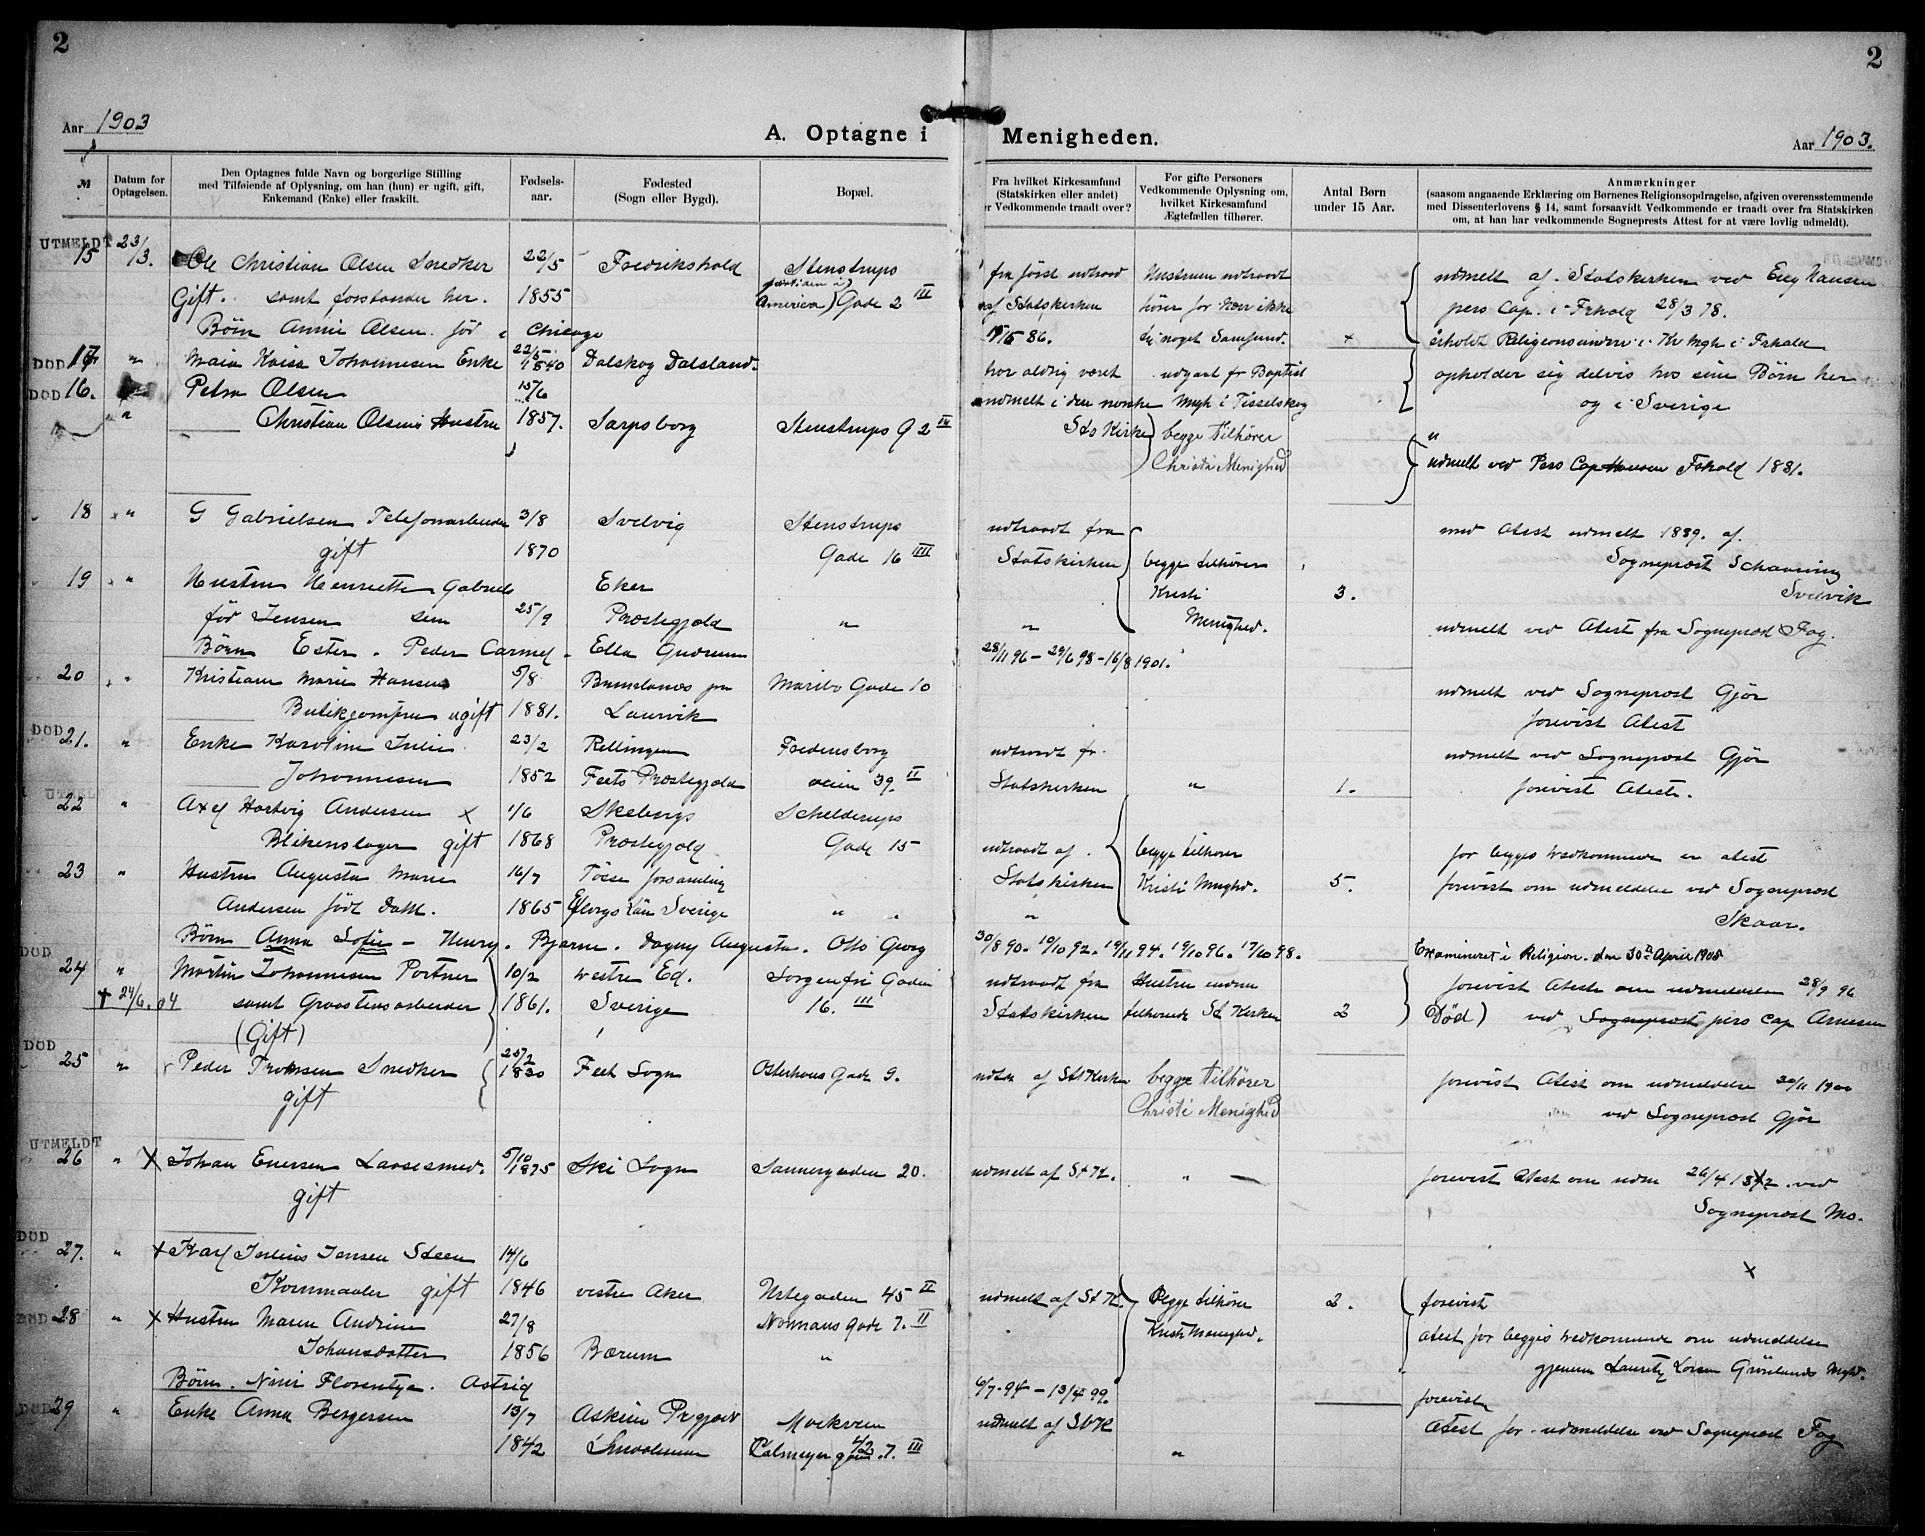 2
2
Aar 1903
A. Optagne i Menigheden.
Aar 1903.
№
Datum for Optagelsen.
Den Optagnes fulde Navn og borgerlige Stilling
med Tilføiende af Oplysning, om han (hun) er ugift, gift,
Enkemand (Enke) eller fraskilt.
Fødsels-
aar.
Fødested
(Sogn eller Bygd).
Bopæl.
Fra hvilket Kirkesamfund
(Statskirken eller andet)
er Vedkommende traadt over?
For gifte Personers
Vedkommende Oplysning om,
hvilket Kirkesamfund
Ægtefællen tilhører.
Antal Børn
under 15 Aar.
Anmærkninger
(saasom angaaende Erklæring om Børnenes Religionsopdragelse, afgiven overensstemmende
med Dissenterlovens § 14, samt forsaavidt Vedkommende er traadt over fra Statskirken
om, at han har vedkommende Sogneprests Attest for at være lovlig udmeldt).
UTMELDT 23/3.
15 Ole Christian Olsen Snedker 22/5 Fredrikshald Stenstrups
Gift. samt forstander her. 1855 America) Gade 2 III
fra først udtraadt Hustruen udtraadt
af Statskirken hører for Nær ikke
86. til noget Samfund. +
udmelt af Statskirken ved
pers Cap. i Frhald 28/3 78.
Børn Annie Olsen.för i Chicago
i Kr Mgh i Frhald
DØD 17 " Maia Kaisa Johannesen Enke 22/5 1840 Dalskog Dalsland.
har aldrig været udgaat fr Baptist
opholder sig delvis hos sine Börn her
DØD 16. Petra Olsen 15/6
indmelt i den norske Mngh i Tisselskog
og i Sverige
" Christian Olsens Hustru 1857. Sarpsborg Stenstrups G 2 III
Sts Kirke) begge tilhører
Christi Menighed
"
udmelt ved Pers Cap Hansen Frhald 1881.
18 " G Gabrielsen Telefonarbeider 3/8 Svelvig Stenstrups
gift 1870 Gade 16 IIII
udtraadt fra
Statskirken begge tilhører
med Atest udmelt 1889. af.
Sogneprest Schanning
Svelvik
19 " Hustru Henriette Gabriel Eker
Kristi 3.
för Jensen sen 25/9 Præstegjeld "
" Menighed.
udmelt ved Atest fra Sogneprest Fog.
Börn Ester. Peder Carmel. Ella Gudrun
28/11 96 – 29/6 98 – 16/8 1901.
20 " Kristiane Marie Hansen 5/8 Brunslanes pr Maribo Gade 10
Butikjomfru ugift 1881. Laurvik
udmelt ved Sogneprest Gjör
forevist Atest
DØD
21. " Enke Karoline Julie 23/2 Rellingen Fredensborg
Johannesen 1852 Feets Præstegjeld veien 39. II
udtraadt fr.
Statskerken " 1.
udmelt ved Sogneprest Gjör
forevist Atest.
UTMELDT
22 " Axel Hartvig Andersen × 1/6 Skebergs Schelderups
Blikenslager gift 1868 Præstegjeld Gade 15
udtraadt af begge tilhører
for begges vedkommende er atest
23 " Hustru Augusta Marie 16/7 Tösse forsamling
Andersen født Dahl. 1865 Elfborgs Län Sverige " "
Statskirken Kristi Mnghd. 5.
"
forevist om udmeldelse ved Sogneprest
Skaar.
Börn Anna Sofie – Henry. Bjarne. Dagny Augusta. Otto Georg
30/8 90. 19/10 92. 19/11 94. 19/10 96. 17/10 98.
Examineret i Religion. den 30te April 1905
DØD
24 " Martin Johannesen Portner 10/2 Westre Ed. Sorgenfri Gaden
† 24/6. 04 samt Graastensarbeider 1861. Sverige 16. III
(Gift)
udtraadt fra Hustru endnu
Statskerken tilhørende St Kerken 2
forevist Atest om udmeldelse 28/9 96
Död) ved Sogneprest pers Cap Arnesen
DØD
25 " Peder Tronsen Snedker 25/2 1830 Feet Sogn Osterhaus Gade 9.
gift
udtr. af St Kerken begge tilhører
Christi Menighed
forevist Atest om udmeldelse 30/11 1900
ved Sogneprest Gjör
UTMELDT
26 " X Johan Enersen Laasesmed. 5/10 1875 Ski Sogn Sannergaden 20.
gift
udmelt af St K. " —
forevist Atest om udm 26/4 ved
Sogneprest Mo.
DØD
27. " × Karl Julius Jensen Steen 14/6
Kornmaaler gift 1846 vestre Aker Urtegaden 45 II
udmelt af St K. Begge tilhører 2. forevist
×
DØD 28 " × Hustru Maren Andrine 27/8 Normans Gade 7. II
Johansdatter 1856 Bærum "
Kristi Menighed.
atest for begges vedkommende om udmeldelse
gjennem Lauritz Larsen Grönlands Mghd.
Börn. Nini Florentze. Astrid
6/7 94 – 13/4 99.
DØD 29 " Enke Anna Bergersen 13/7 Askim Prgjeld
1842 Smaalenene Calmeyer gaden 7. III
udmelt af St K
"
forevist
Atest for udmeldelse ved Sogneprest Fog